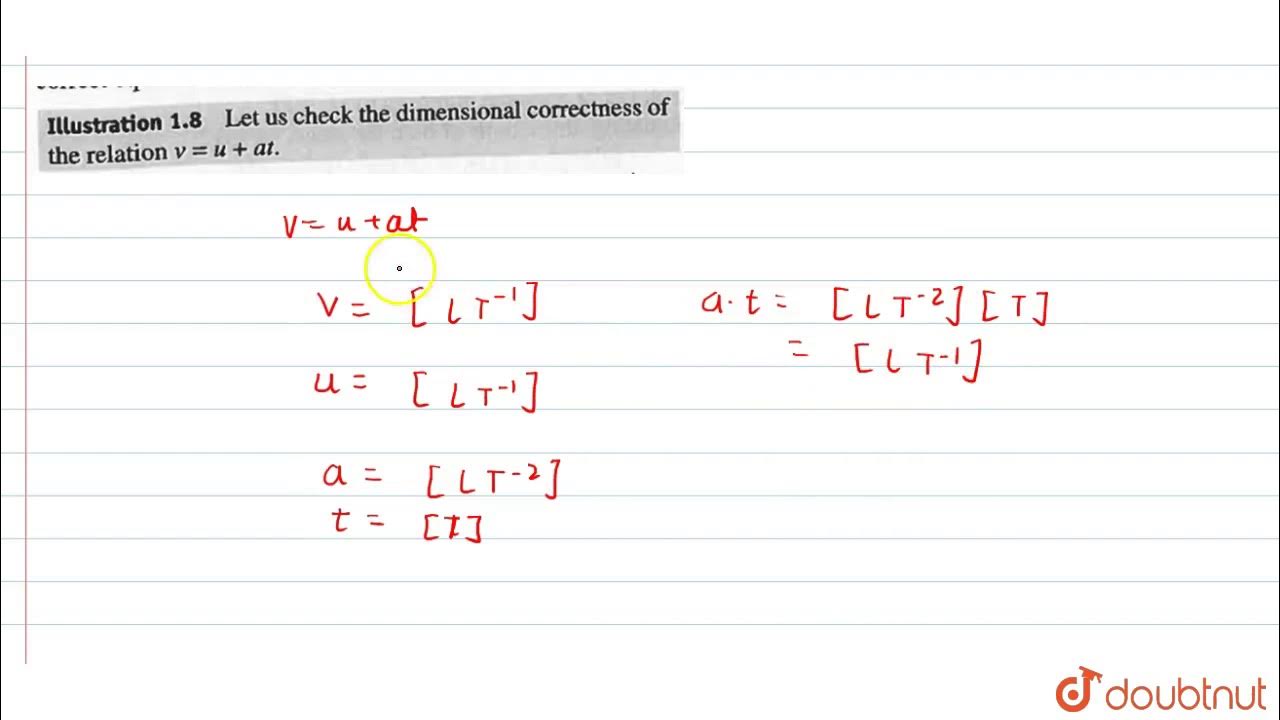 Illustration 1.8 Let us check the dimensional correctness of
the relation v = u + at.
V = u + at
V = [L T⁻¹]
a·t = [L T⁻²] [T]
= [L T⁻¹]
u = [L T⁻¹]
a = [L T⁻²]
t = [T]
doubtnut